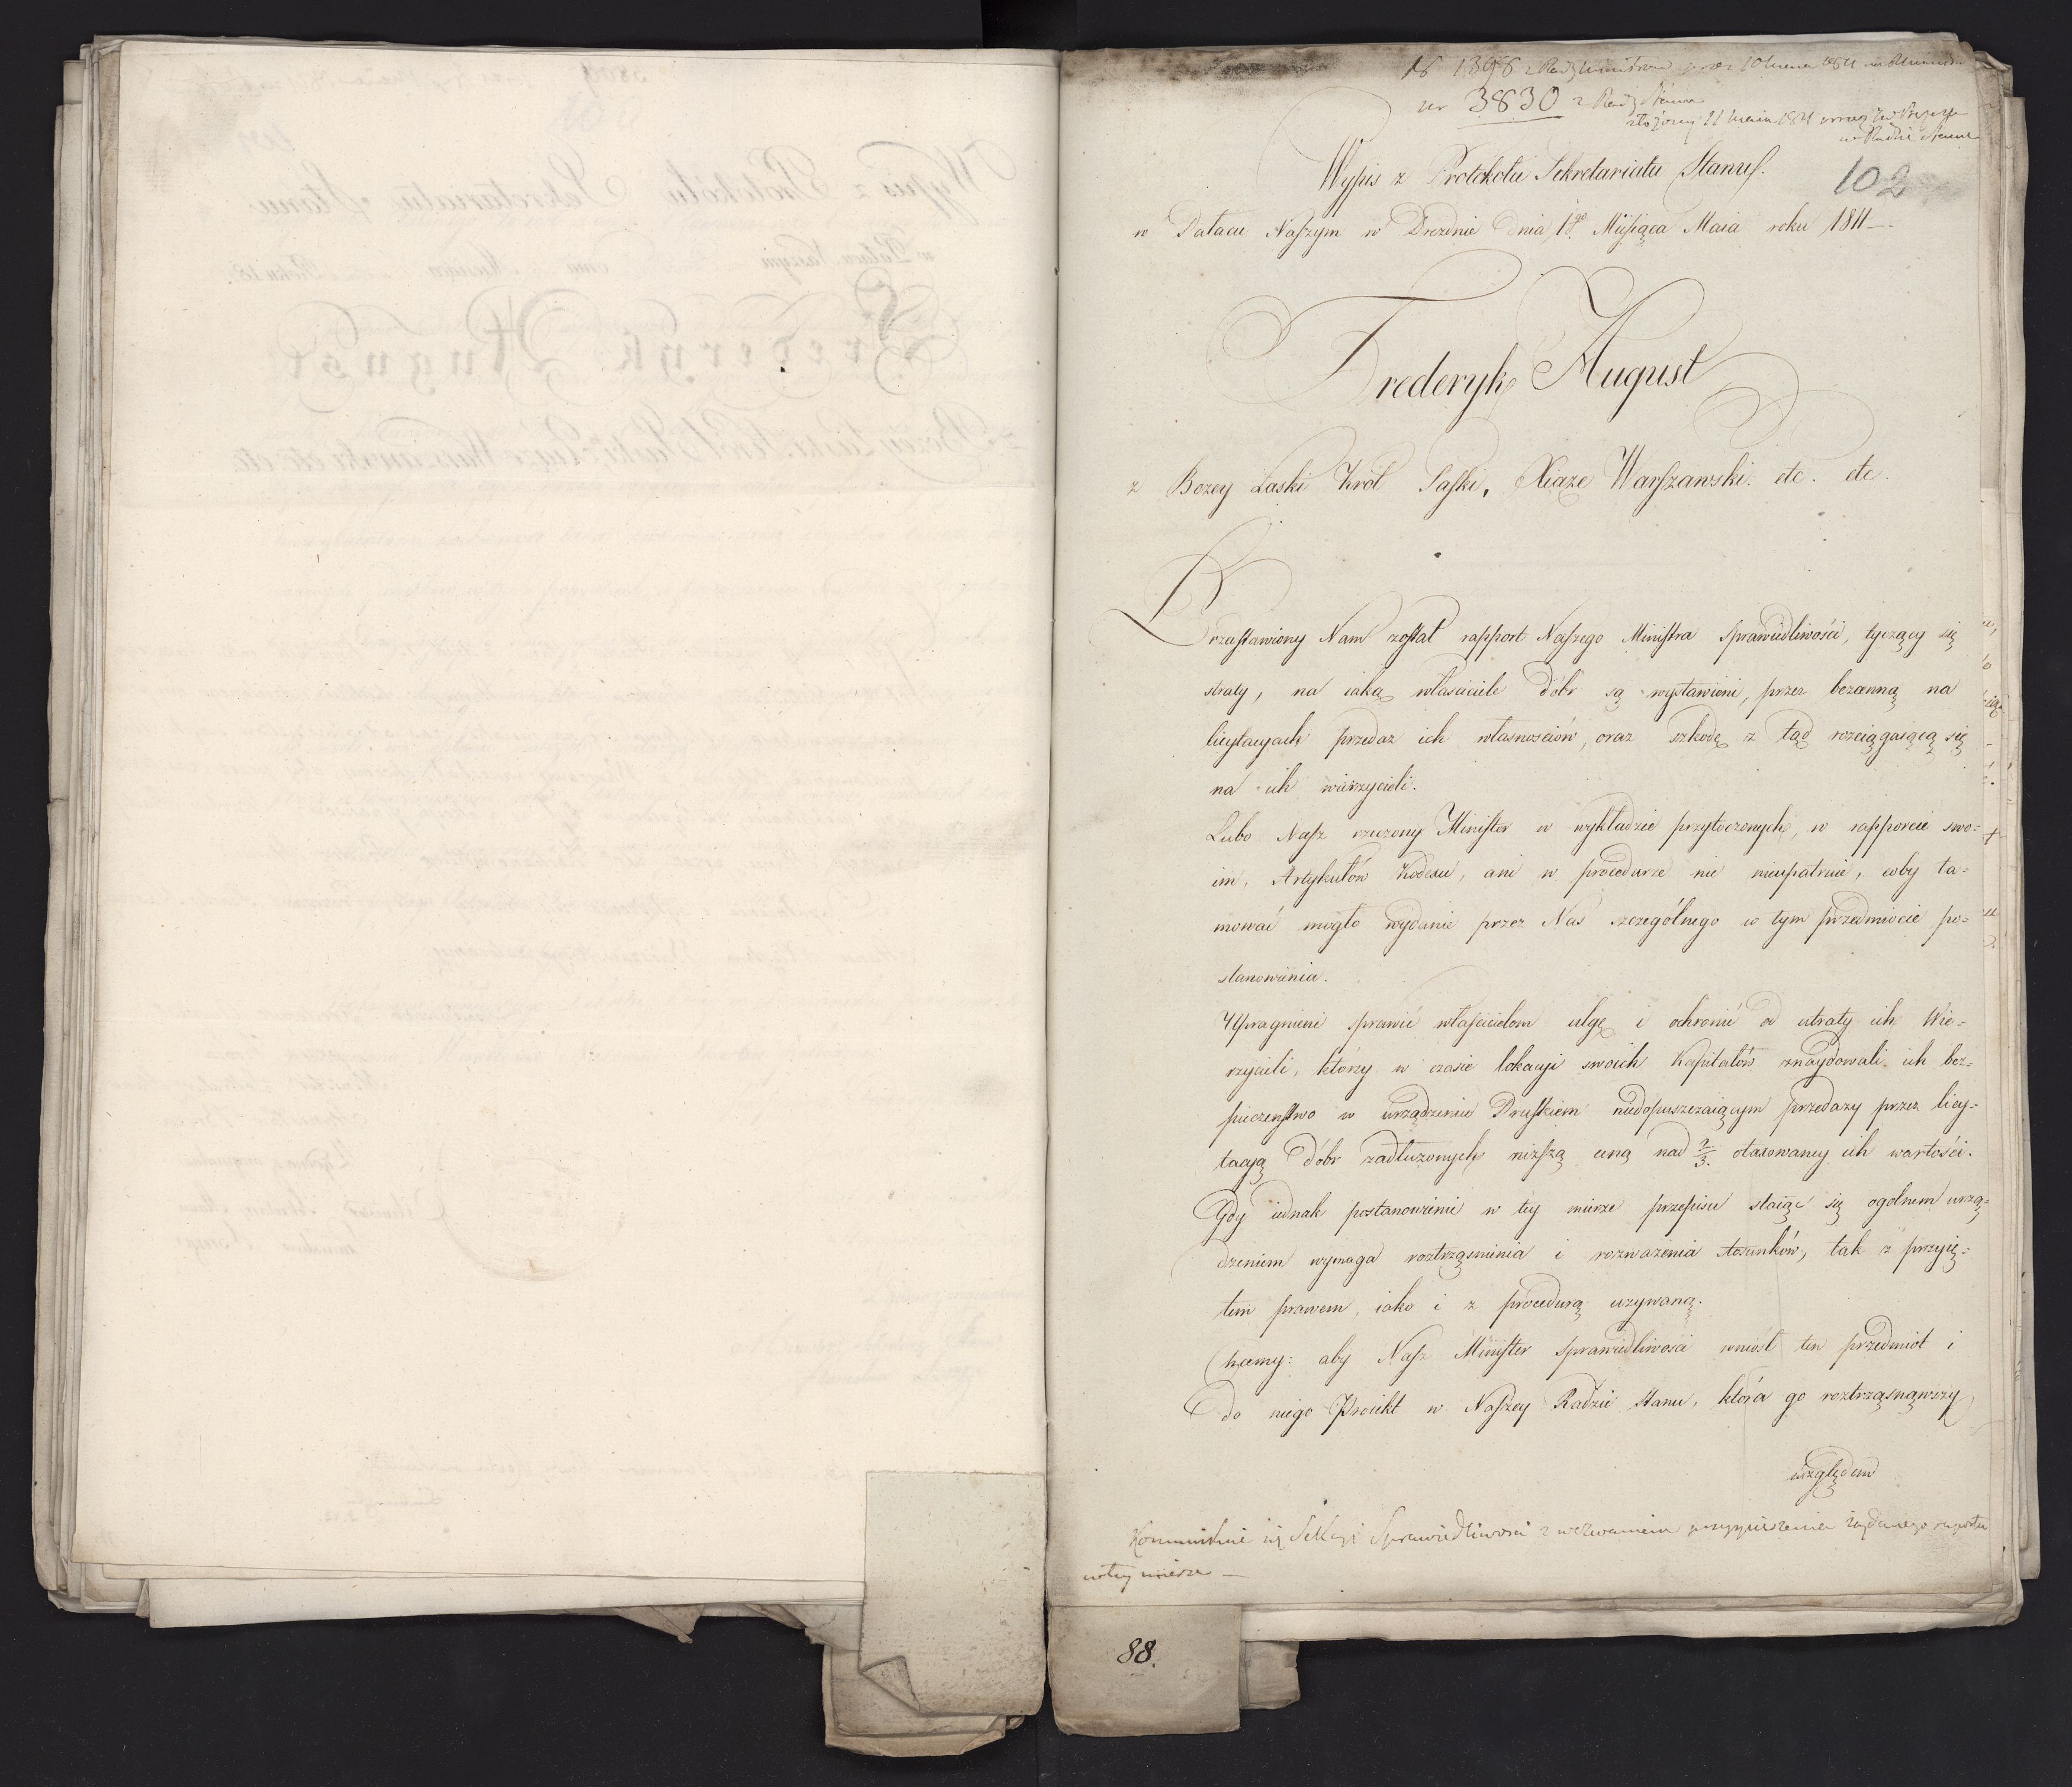 1396 z Rady Ministrow
nr 3830 z Rady Stanu
złożony 11 maia 1811
w Radzie Stanu
102
Wypis z Protokołu Sekretariatu Stanu.
w Pałacu Naszym w Dreznie dnia 1go Miesiąca Maia roku 1811
Frederyk August
z Bozey Łaski Król Saski, Xiąże Warszawski. etc. etc.
Przestawiony Nam został rapport Naszego Ministra Sprawiedliwości, tyczący się
straty, na iaką właściciele dóbr są wystawieni, przez bezcenną na
licytacyach przedaz ich własnosciów, oraz szkodę z tąd rozciągaiącą się
na ich wierzycieli.
Lubo Nasz rzeczony Minister w wykładzie przytoczonych, w rapporcie swo=
im, Artykułów Kodexu, ani w procedurze nic nieupatruie, coby ta=
mować mogło wydanie przez Nas szczególnego w tym przedmiocie po=
stanowienia.
Upragnieni sprawić właścicielom ulgę i ochronić od utraty ich Wie=
rzycieli, którzy w czasie lokacyi swoich Kapitałów znaydowali ich bez=
pieczenstwo w urządzeniu Pruskiem niedopuszczaiącym przedazy przez licy=
tacyą dóbr zadłuzonych nizszą ceną nad 2/3. otaxowaney ich wartości.
Gdy iednak postanowienie w tey mierze przepisu staiąc się ogolnem urzą=
dzeniem wymaga roztrząsnienia i rozwazenia stosunków, tak z przyię=
tem prawem, iako i z procedurą uzywaną.
Chcemy: aby Nasz Minister Sprawiedliwości wniósł ten przedmiot i
do niego Proiekt w Naszey Radzie Stanu, która go roztrząsnąwszy
względem
Kommunikuie się Sekcyi Sprawiedliwosci z wezwaniem przyspieszenia żądanego raportu
w tey mierze —
88.